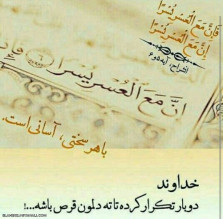 فَإِنَّ مَعَ الْعُسْرِ يُسْرًا
إِنَّ مَعَ الْعُسْرِ يُسْرًا
إنَّ مَعَ العسر يسرا
با هر سختی، آسانی است.
خداوند
دوبار تکرار کرده تا ته دلمون قرص باشه...!